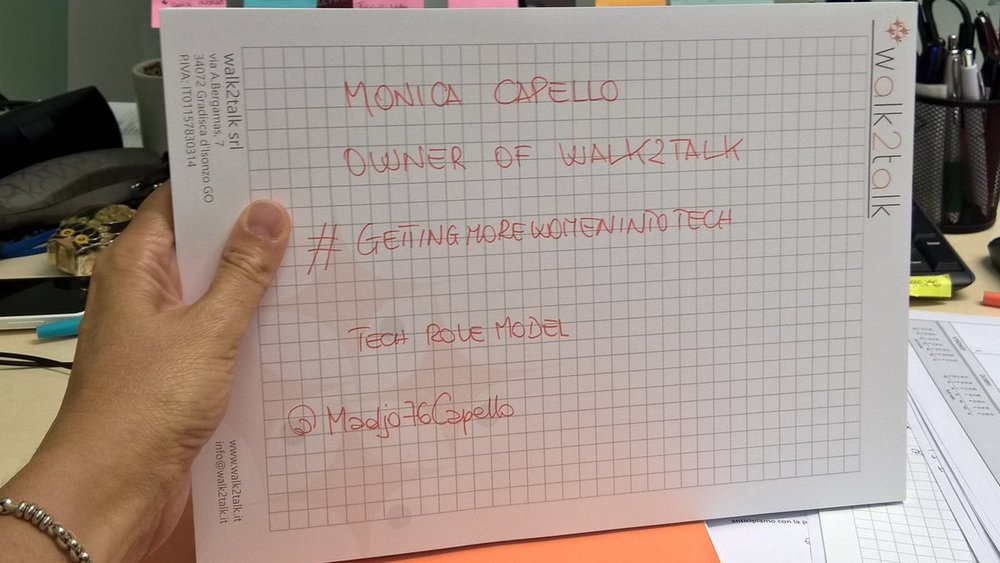 MONICA CAPELLO
OWNER OF WALK2TALK
# GETTINGMOREWOMENINTOTECH
TECH ROLE MODEL
@Madjo76Capello
walk2talk
walk2talk srl
via A.Bergamas, 7
34072 Gradisca d'Isonzo GO
P.IVA: IT01157830314
www.walk2talk.it
info@walk2talk.it
anticipiamo con la p